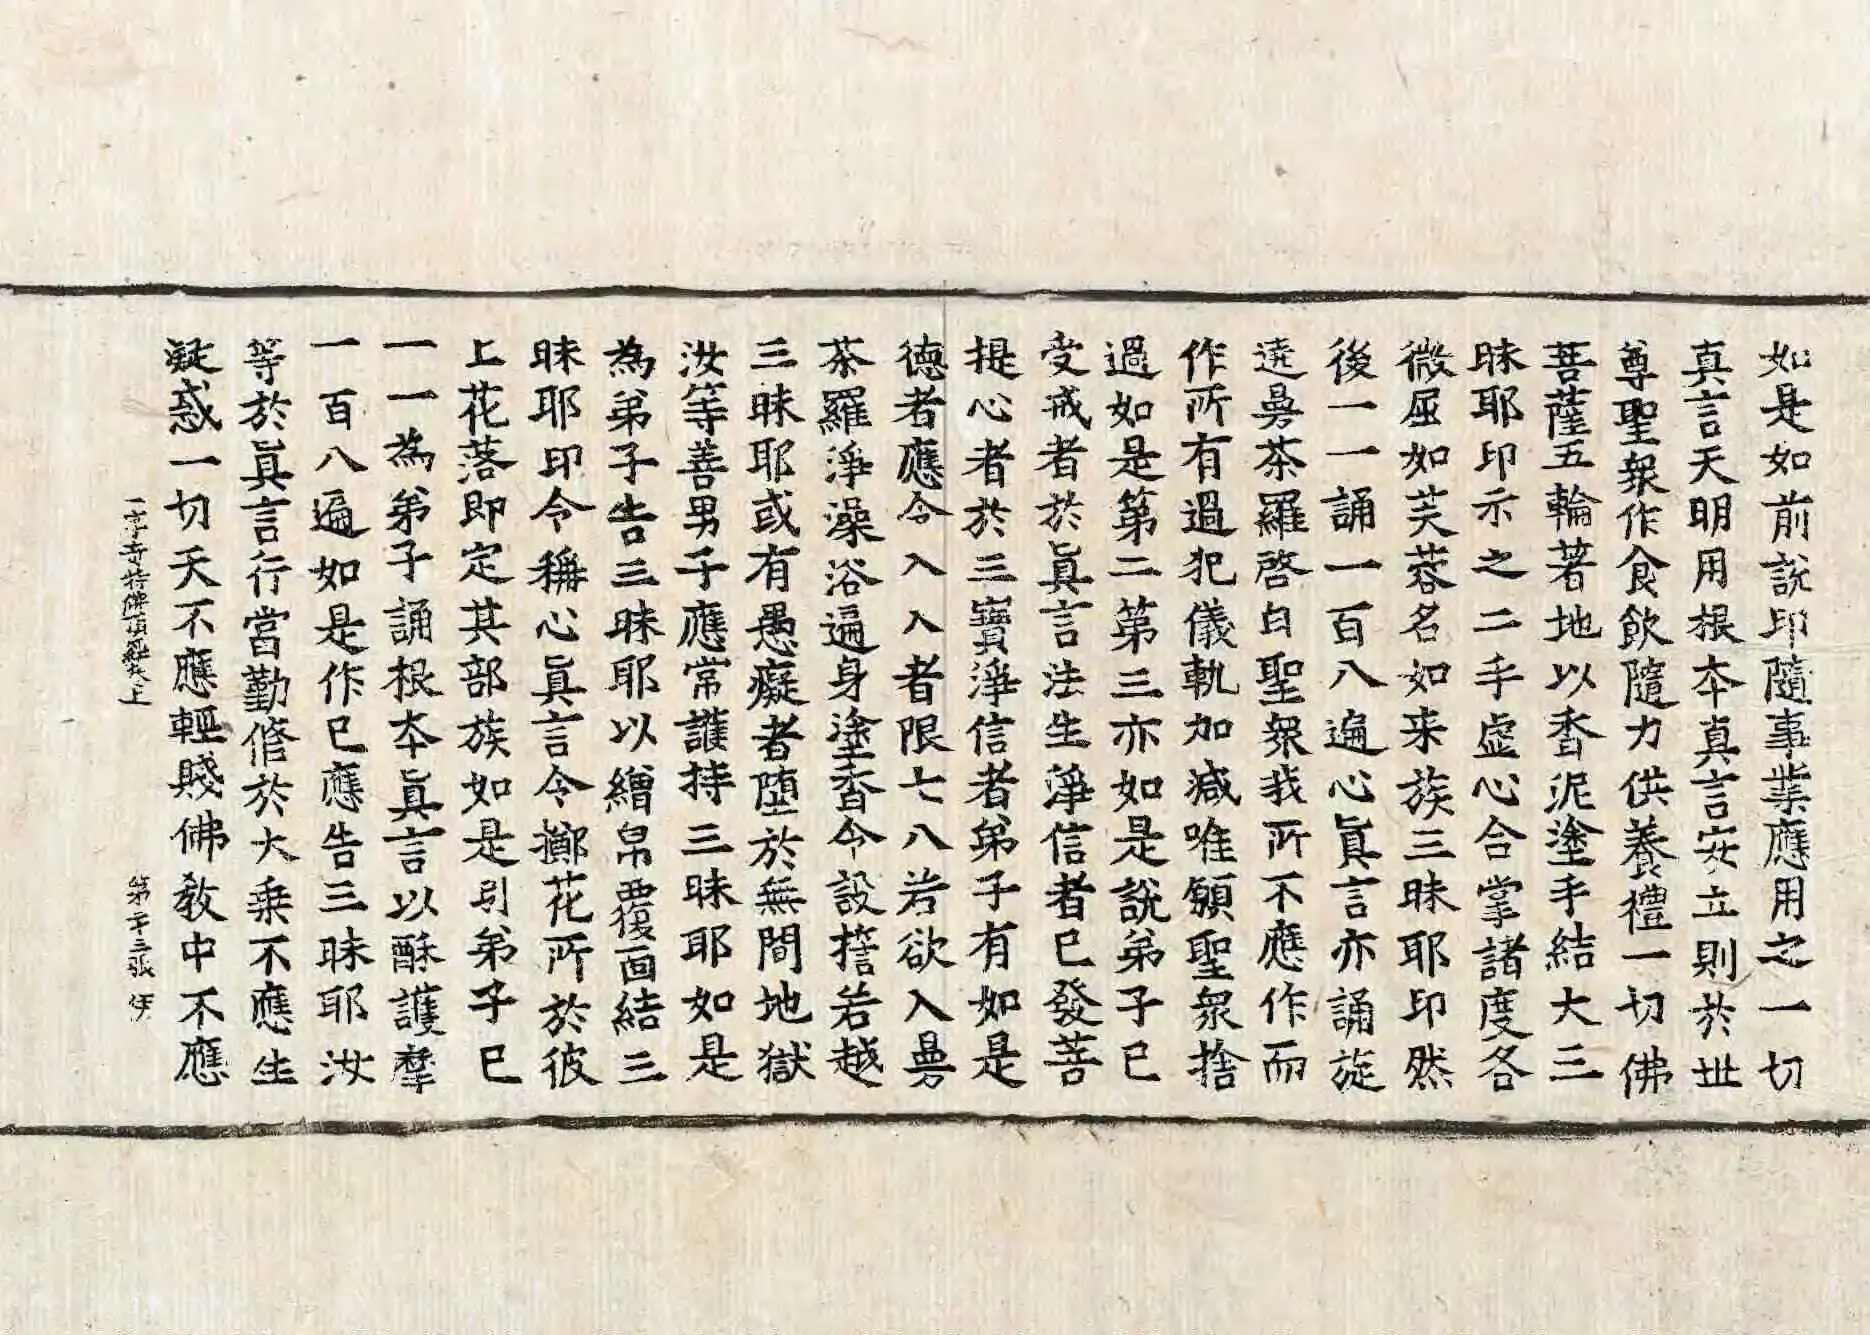 如是如前說印隨事業應用之一切
真言天明用根夲真言安立則於世
尊聖衆作食飲隨力供養禮一切佛
菩薩五輪著地以香泥塗手結大三
昧耶印示之二手虛心合掌諸度各
微屈如芙蓉名如来族三昧耶印然
後一一誦一百八遍心真言亦誦旋
遶曼茶羅啓白聖衆我所不應作而
作所有過犯儀軌加減唯願聖衆捨
過如是第二第三亦如是說弟子已
受戒者於眞言法生淨信者已發菩
提心者於三寶淨信者弟子有如是
德者應令入入者限七八若欲入曼
茶羅淨澡浴遍身塗香令設誓若越
三昧耶或有愚癡者墮於無間地獄
汝等善男子應常護持三昧耶如是
為弟子告三昧耶以繒帛覆面結三
昧耶印令稱心眞言令擲花所於彼
上花落即定其部族如是引弟子已
一一為弟子誦根夲眞言以酥護摩
一百八遍如是作已應告三昧耶汝
等於眞言行當勤修於大乗不應生
疑惑一切天不應輕賤佛教中不應
一字奇特佛頂經卷上
第十三張 伊